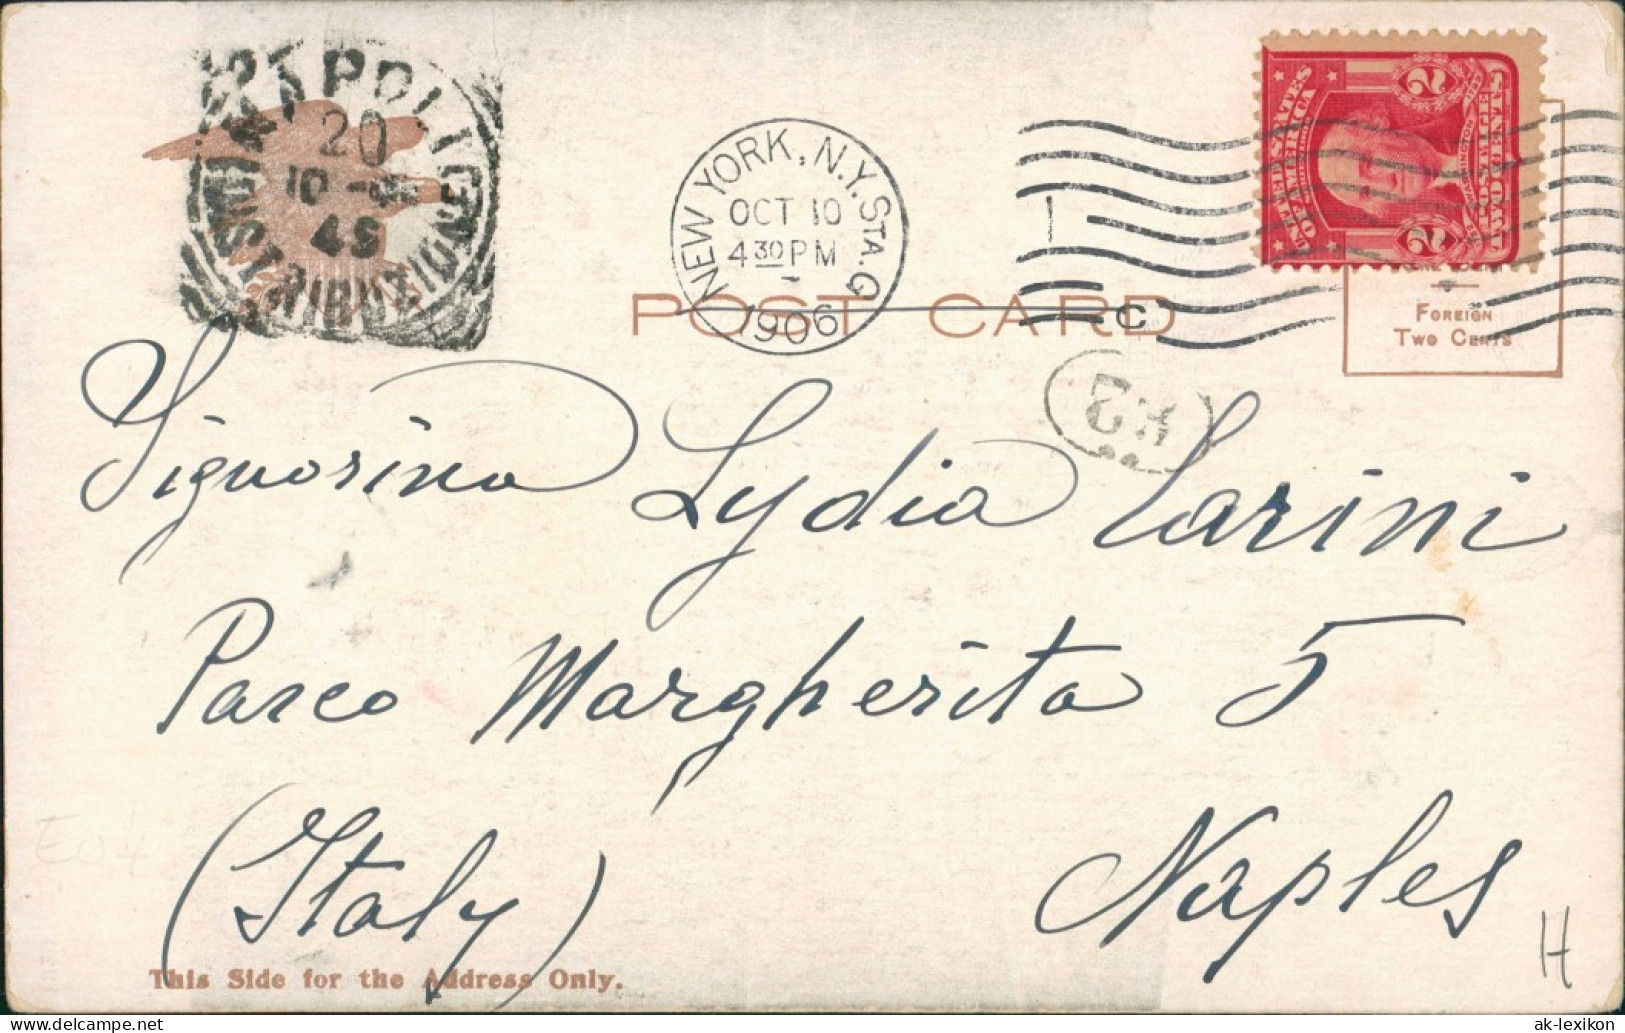 NAPOLI
DISTRIBUZIONE
20
10
4S
NEW YORK, N.Y. STA. G
OCT 10
4 30 PM
1906
C
UNITED STATES
OF AMERICA
2 2
WASHINGTON
POSTAGE
TWO CENTS
POST CARD
FOREIGN
TWO CENTS
Signorina Lydia Larini
Parco Margherita 5
(Italy) Naples
H
This Side for the Address Only.
ak-lexikon